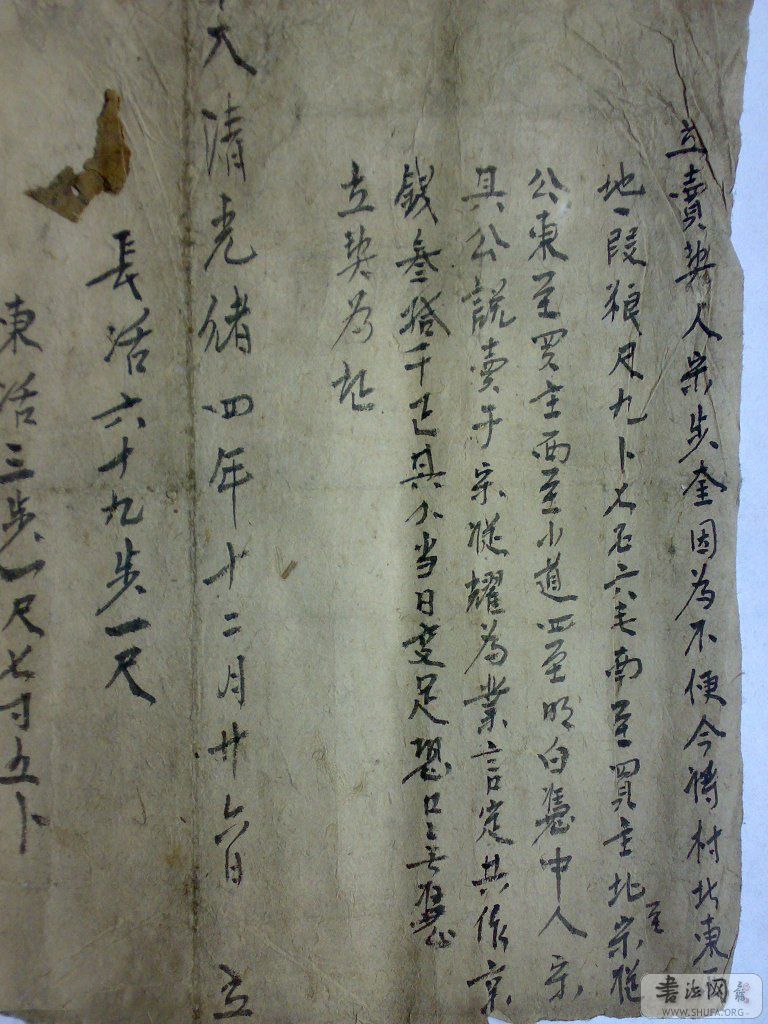 立賣契人宗步奎因為不便今將村北東
地一段粮尺九卜七石六毛南至買主北至宗從
公東至買主西至小道四至明白憑中人宗
具公說賣于宗從耀為業言定共作京
錢叁拾千正其介当日交足恐口無憑
立契為証
大清光绪四年十二月廿六日 立
長活六十九步一尺
東活三步一尺七寸五卜
書法网
WWW.SHUFA.ORG